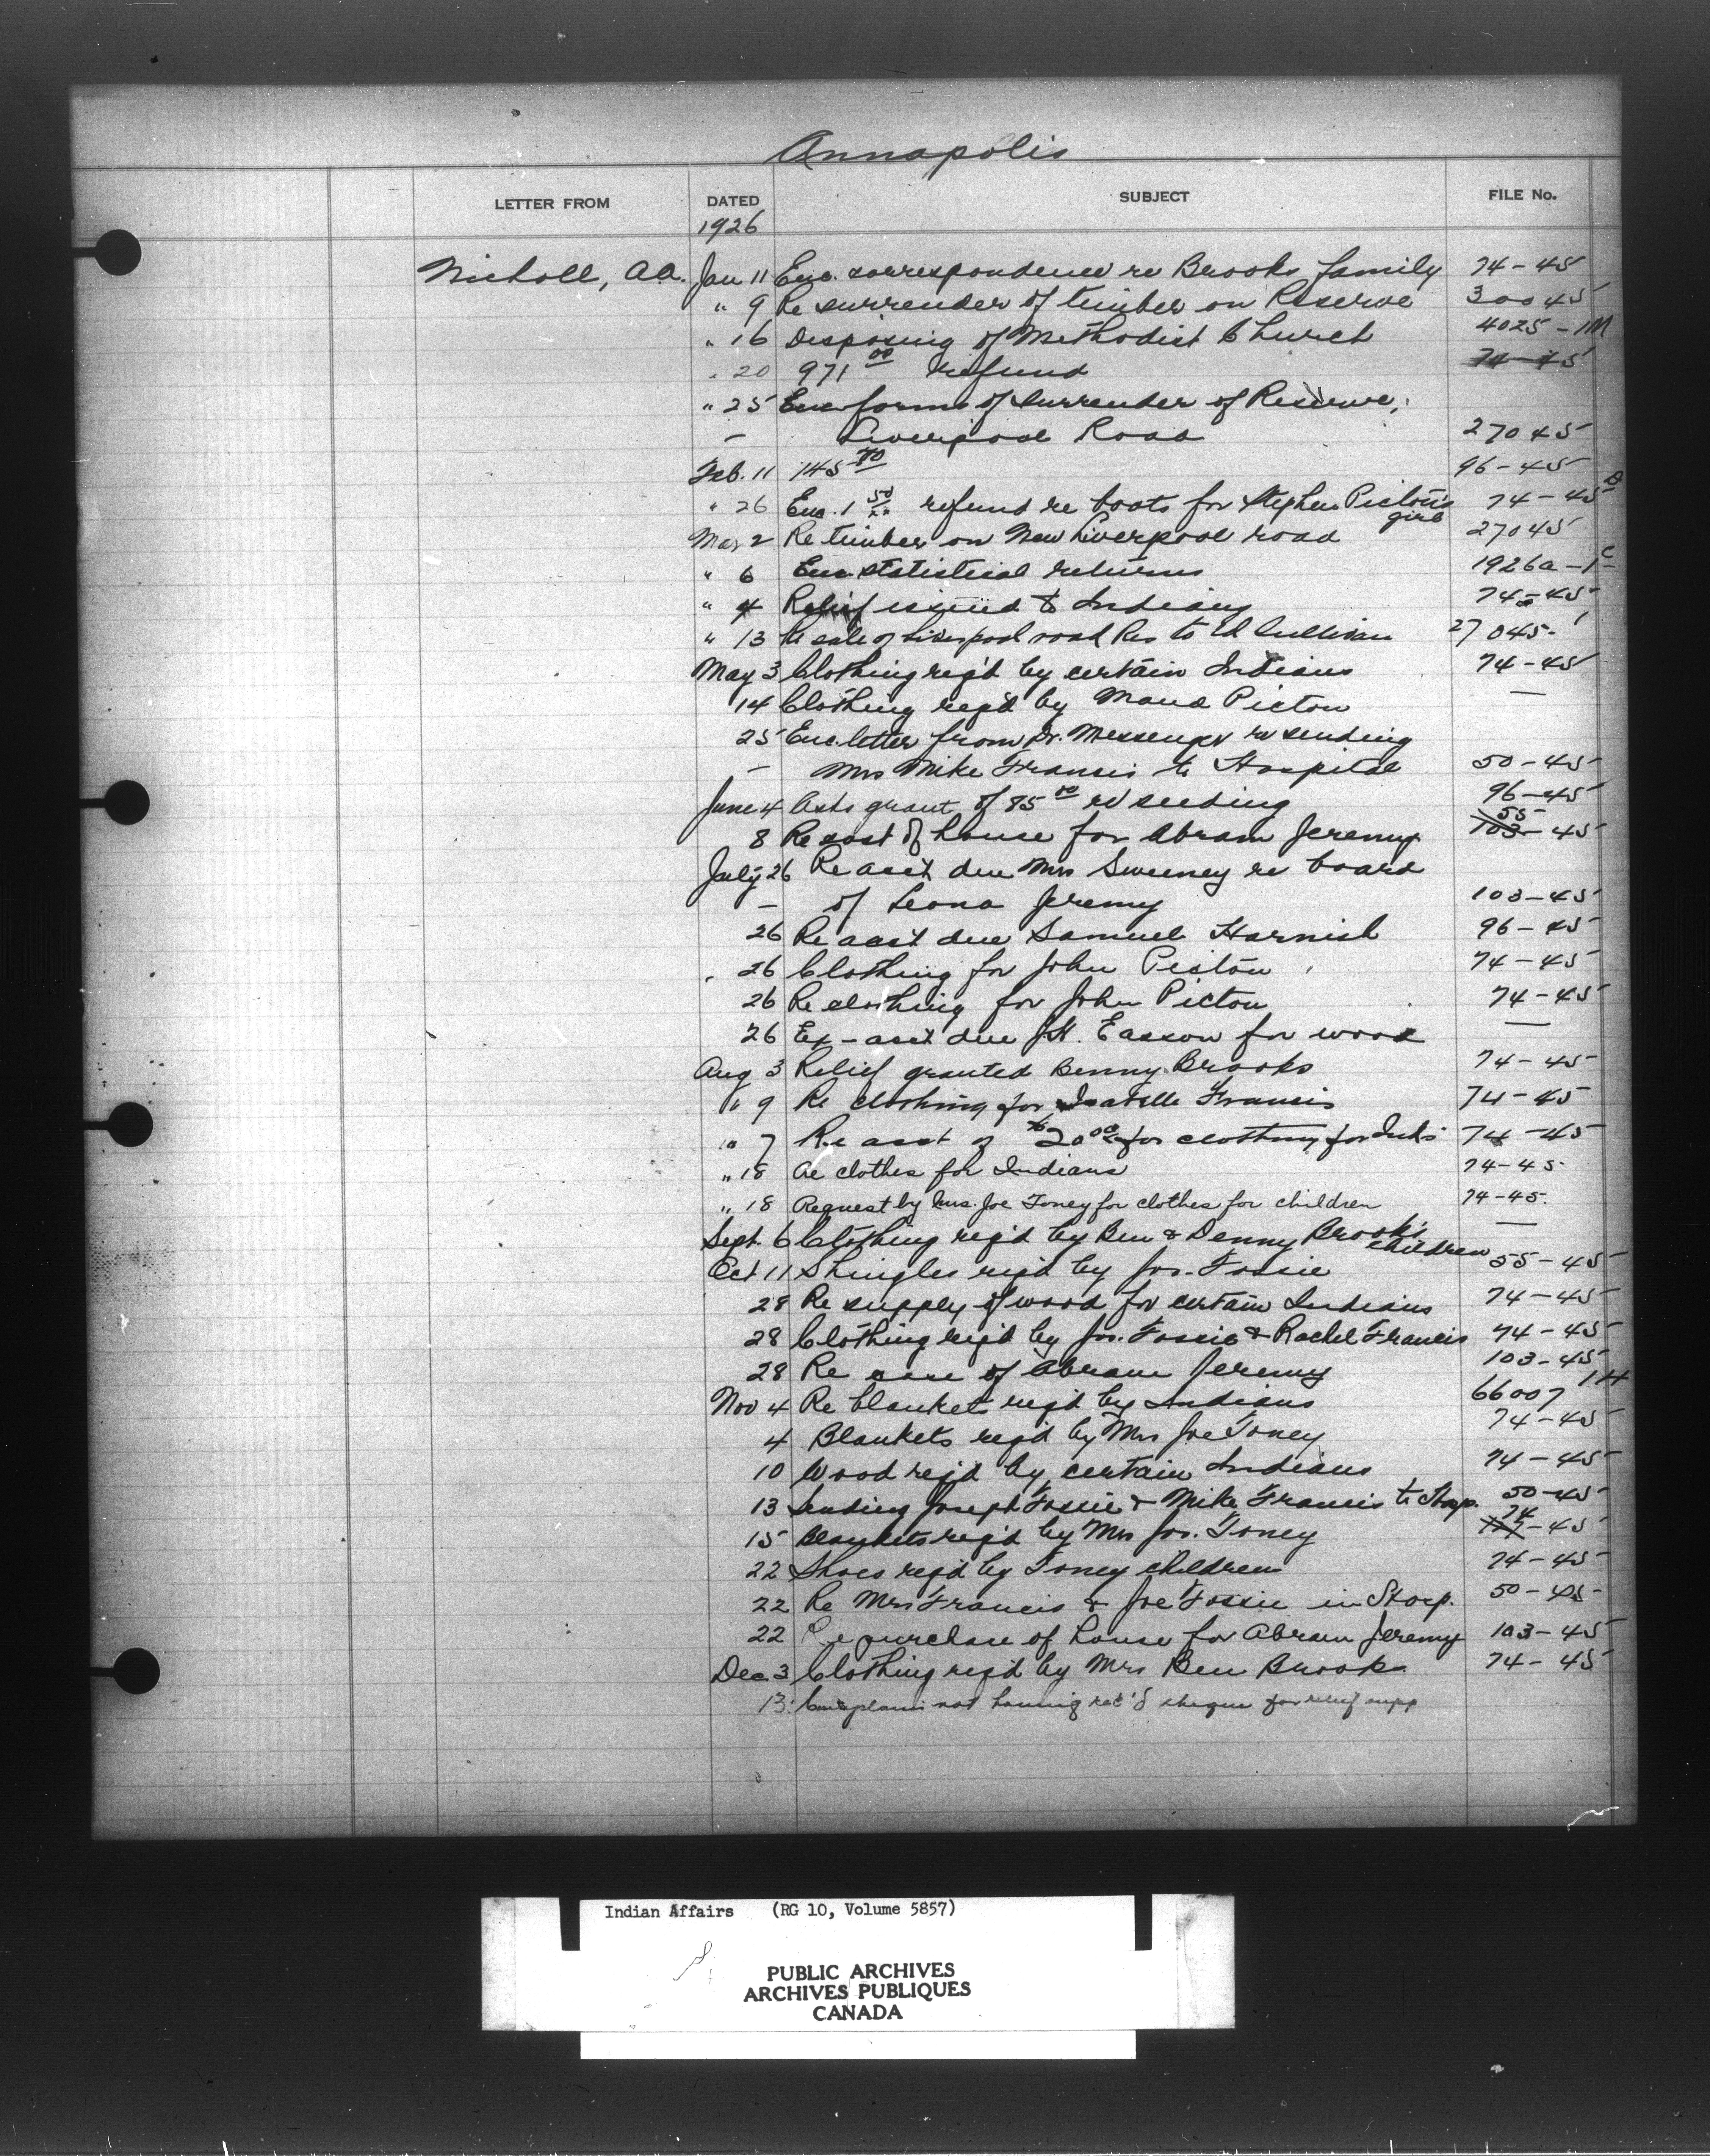 Annapolis
LETTER FROM DATED SUBJECT FILE No.
1926
Nicholl, A.A. Jan 11 Enc. correspondence re Brooks family 74-45
" 9 Re surrender of timber on Reserve 30045
" 16 Disposing of Methodist Church 4025-1M
" 20 971 00 refund 74-45
" 25 Enc forms of surrender of Reserve,
— Liverpool Road 27045
Feb. 11 145 70 96-45
" 26 Enc. 1 50 refund re boots for Stephen Picton's girls 74-45 D
Mar 2 Re timber on New Liverpool road 27045
" 6 Enc. statistical returns 1926a-1 C
" 4 Relief issued to Indians 74-45
" 13 Re sale of Liverpool road Res to Ed Sullivan 27045-1
May 3 Clothing req'd by certain Indians 74-45
14 Clothing req'd by Maud Picton —
25 Enc. letter from Dr. Messenger re sending
— Mrs Mike Francis to Hospital 50-45
June 4 Asks grant of 85 00 re seeding 96-45
8 Re cost of house for Abram Jeremy 103 55-45
July 26 Re acct due Mrs Sweeney re board
— of Leona Jeremy 103-45
26 Re acct due Samuel Harnish 96-45
" 26 Clothing for John Picton 74-45
26 Re clothing for John Picton 74-45
26 Ex-acct due J.H. Easson for wood —
Aug 3 Relief granted Benny Brooks 74-45
" 9 Re clothing for Isabelle Francis 74-45
" 7 Re acct of $20 00 for clothing for Inds 74-45
" 18 Re clothes for Indians 74-45.
" 18 Request by Mrs. Joe Toney for clothes for children 74-45.
Sept. 6 Clothing req'd by Ben & Denny Brook's children —
Oct 11 Shingles req'd by Jos. Fossie 55-45
28 Re supply of wood for certain Indians 74-45
28 Clothing req'd by Jos. Fossie & Rachel Francis 74-45
28 Re case of Abram Jeremy 103-45
Nov 4 Re blanket req'd by Indians 66007 1H
4 Blankets req'd by Mrs Joe Toney 74-45
10 Wood req'd by certain Indians 74-45
13 Sending Joseph Fossie & Mike Francis to Hosp. 50-45
15 Blankets req'd by Mrs Jos. Toney 74-45
22 Shoes req'd by Toney children 74-45
22 Re Mrs Francis & Joe Fossie in Hosp. 50-45
22 Re purchase of house for Abram Jeremy 103-45
Dec 3 Clothing req'd by Mrs Ben Brooks 74-45
13. Complains not having rec'd cheque for relief supp
Indian Affairs (RG 10, Volume 5857)
PUBLIC ARCHIVES
ARCHIVES PUBLIQUES
CANADA